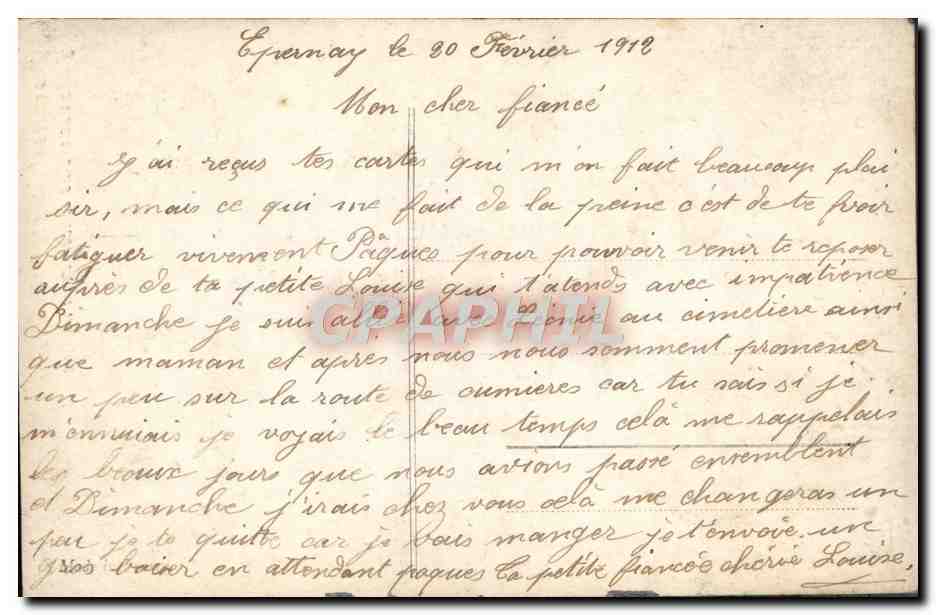 Epernay le 20 Février 1912
Mon cher fiancé
J'ai reçus tes cartes qui m'on fait beaucoup plai
sir, mais ce qui me fait de la peine c'est de te voir
fatiguer vivement Pâques pour pouvoir venir te reposer
auprès de ta petite Louise qui t'atends avec impatience
Dimanche je suis avec Léonie au cimetière ainsi
que maman et après nous nous somment promener
un peu sur la route de cumieres car tu sais si je
m'ennuiais je voyais le beau temps celà me rappelais
les beaux jours que nous avions passé ensemblent
et Dimanche j'irais chez vous celà me changeras un
peu je te quitte car je vais manger je t'envoie un
gros baiser en attendant paques ta petite fiancée chérie Louise.
CPAPHIL